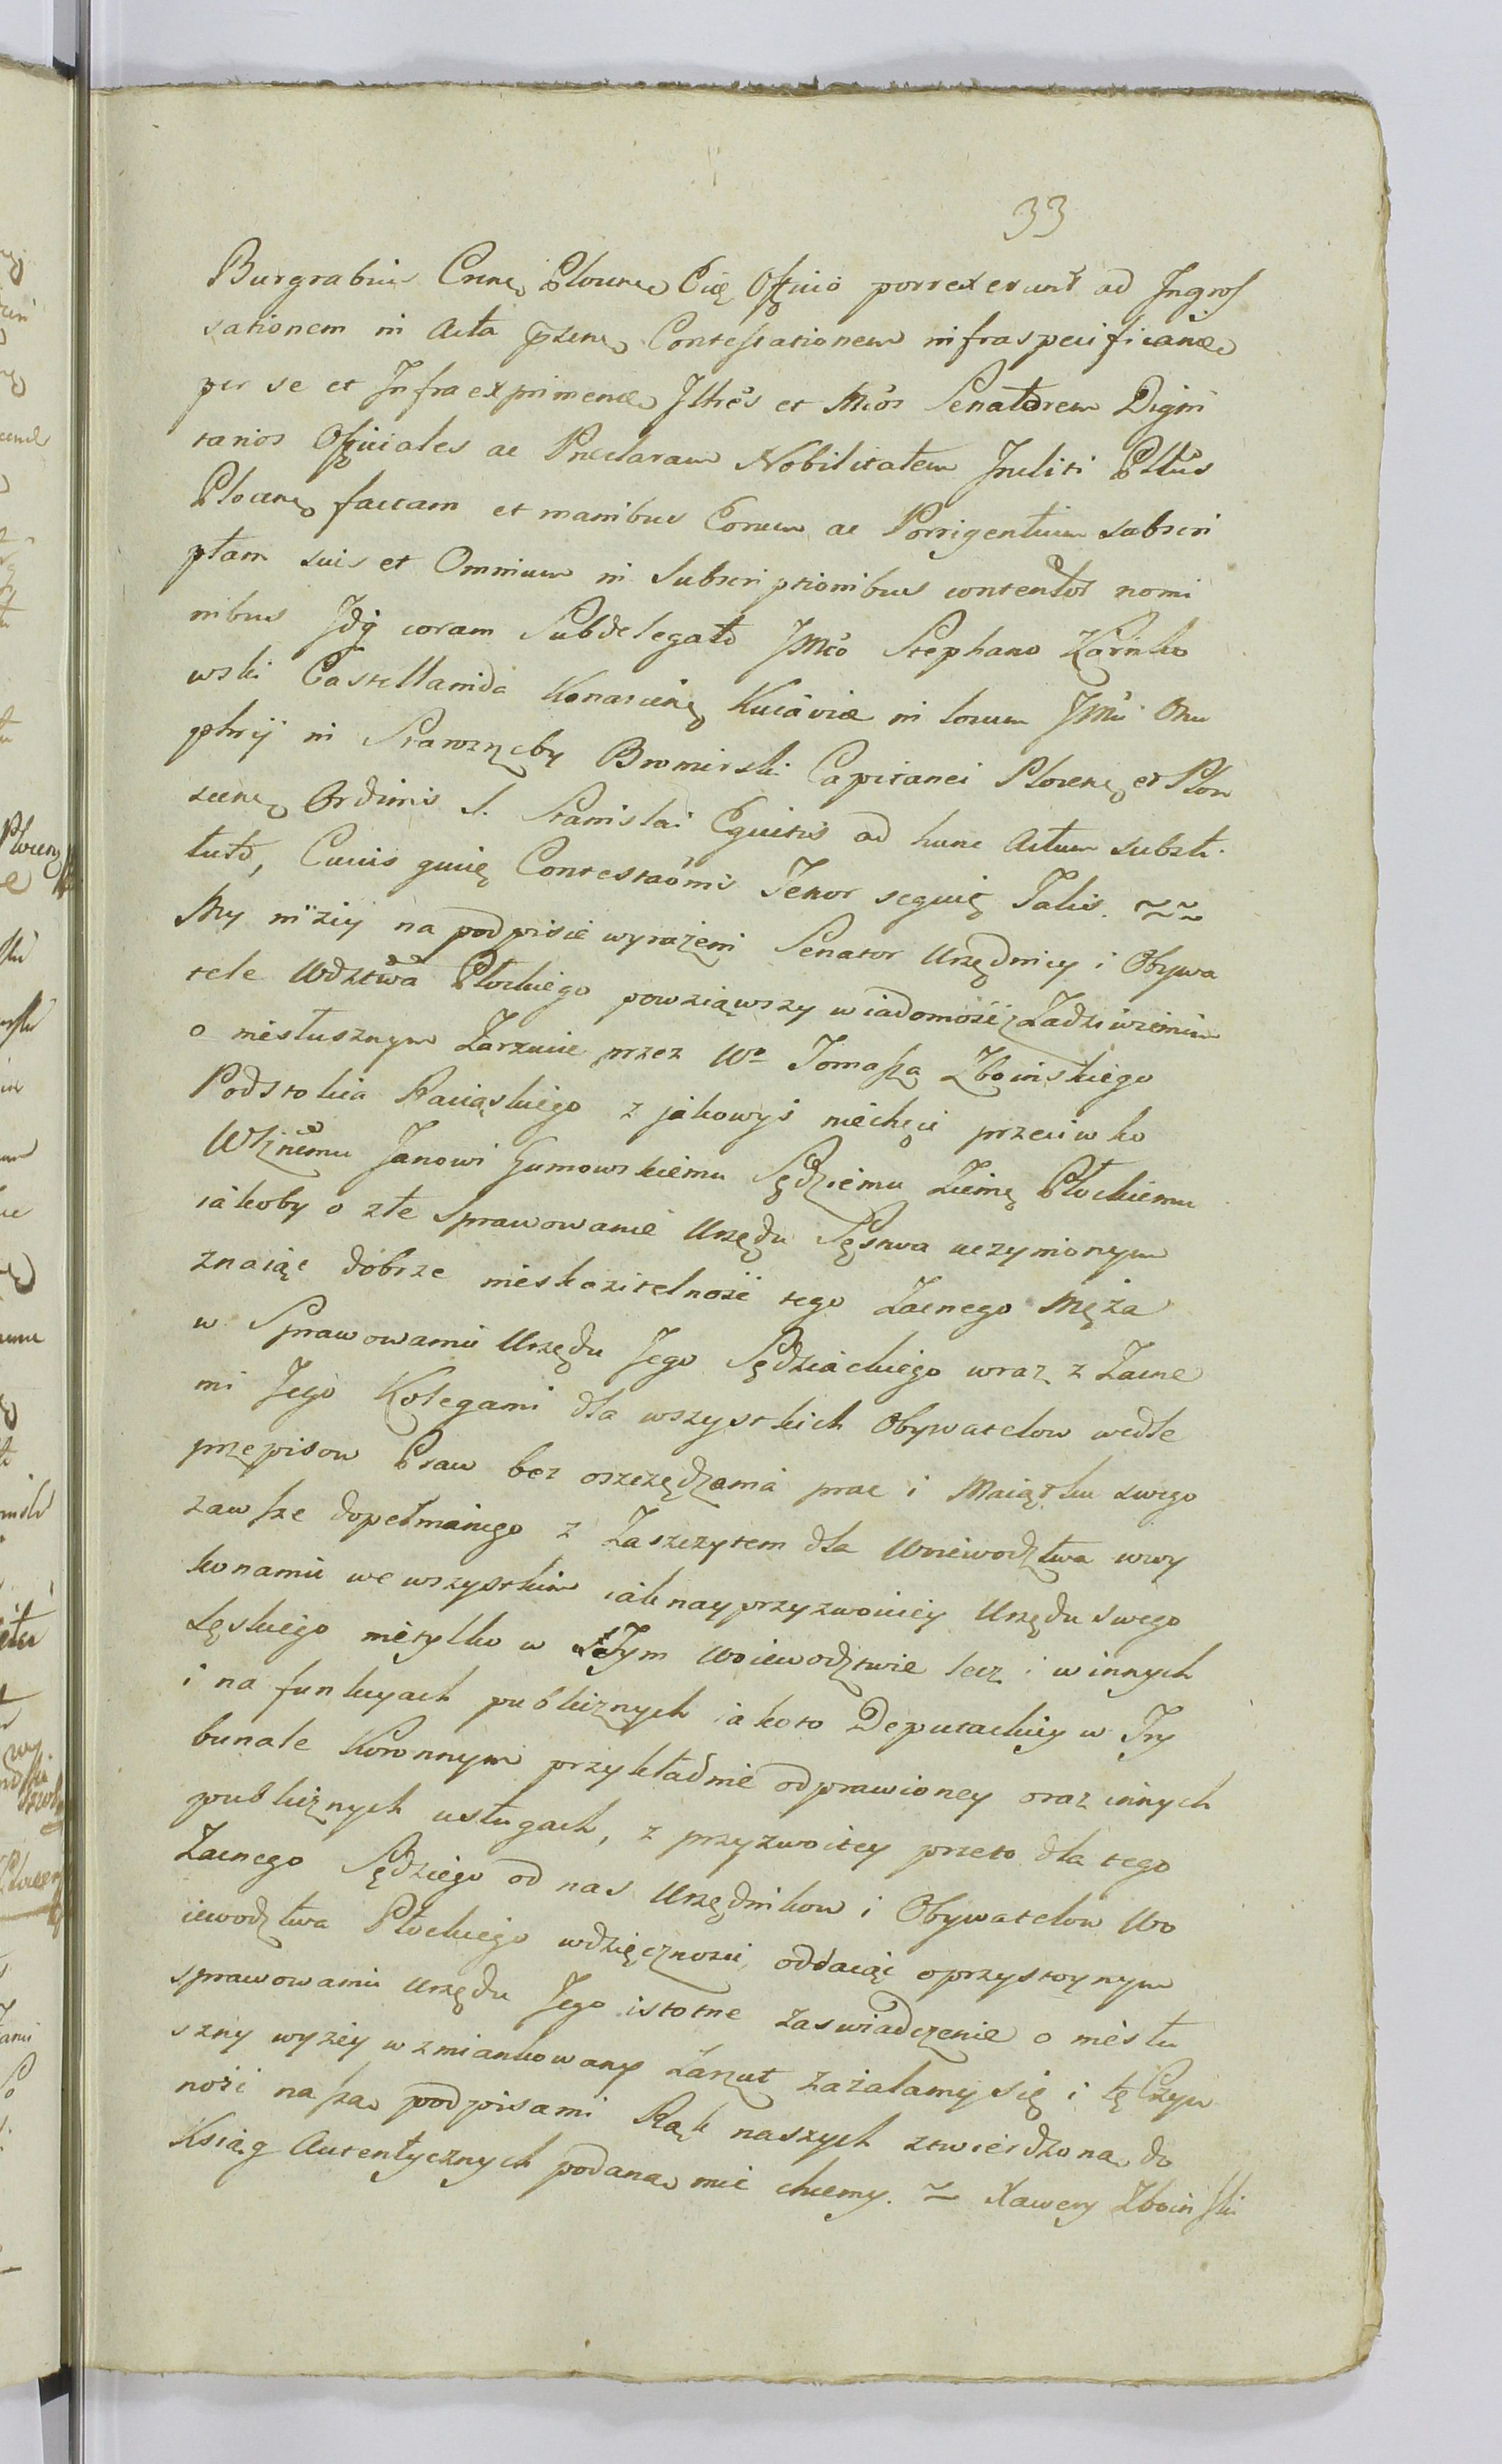 33
Burgrabius Crnę Plocenę Eię Officio porrexerunt ad Ingros
sationem in Acta pszenę Contestationem infraspecificanae
per se et Infraexprimenae Illres et Mcos Senatorem Digni
tarios Officiales ac Praeclaram Nobilitatem Incliti Pltus
Plocenę factam et manibus Eorum ac Porrigentium subscri
ptam suis et Omnium in Subscriptionibus contentor nomi
nibus Idq coram Subdelegato JMco Stephano Karnko
wski Castellanida Konariensę Kuiaviae in locum JMci Onu
phrij in Stawzręby Bromirski Capitanei Plocenę et Plon
scenę Ordinis S. Stanislai Equitis ad hunc Actum substi
tuto, Cuius quię Contestaonis Tenor seguię Talis. ~~
My niżiy na podpisie wyrażeni Senator Urzędnicy i Obywa
tele Wdztwa Płockiego powziąwszy wiadomość z Zadziwieniem
o niesłusznym Zarzucie przez Wo Tomasza Zboinskiego
Podstolica Raciąskiego z jakowyś niechęci przeciwko
Wlznemu Janowi Gumowskiemu Sędziemu Ziemę Płockiemu
iakoby o złe sprawowanie Urzędu Sęstwa uczynionym
znaiąc dobrze nieskazitelność tego Zacnego Męża
w Sprawowaniu Urzędu Jego Sędziackiego wraz z Zacne
mi Jego Kolegami dla wszystkich Obywatelow wedle
przepisow Praw bez oszczędzania prac i Maiątku swego
zawsze dopełnianego z Zaszczytem dla Woiewodztwa wwy
konaniu we wszystkim iaknayprzyzwoiciey Urzędu swego
Sęskiego nietylko w tym Woiewodztwie lecz i w innych
i na funkcyach publicznych iakoto Deputackiey w Try
bunale Koronnym przykładnie odprawioney oraz innych
publicznych usługach, z przyzwoitey przeto dla tego
Zacnego Sędziego od nas Urzędnikow i Obywatelow Wo
iewodztwa Płockiego wdzięczności, oddaiąc oprzystoynym
sprawowaniu urzędu Jego istotne zaswiadczenie o niesłu
szny wyzey wzmiankowany Zarzut zażalamy się i tę Czyn
ność naszą podpisami Rąk naszych ztwierdzoną do
Ksiąg Autentycznych podaną mić chcemy. ~ Xawery Zboinski